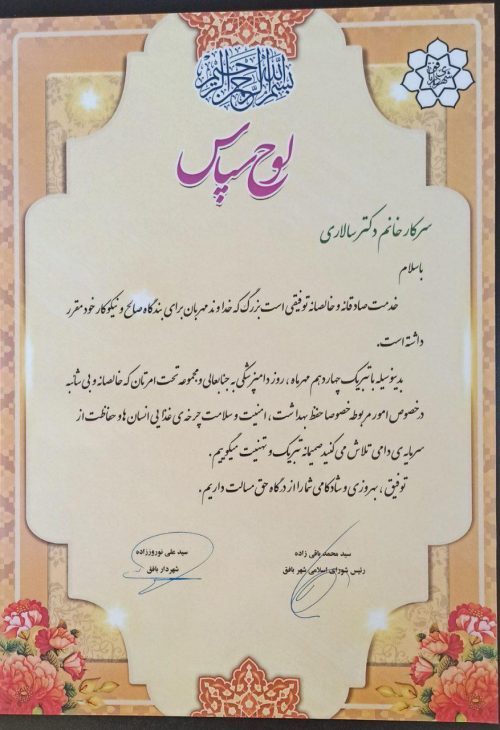 بسم الله الرحمن الرحیم
لوح سپاس
سرکار خانم دکتر سالاری
باسلام
خدمت صادقانه و خالصانه توفیقی است بزرگ که خداوند مهربان برای بندگاه صالح و نیکوکار خود مقرر
داشته است.
بدینوسیله با تبریک چهاردهم مهرماه ، روز دامپزشکی به جنابعالی و مجموعه تحت امرتان که خالصانه و بی شائبه
در خصوص امور مربوطه خصوصا حفظ بهداشت ، امنیت و سلامت چرخه ی غذایی انسان ها و حفاظت از
سرمایه ی دامی تلاش می کنید صمیمانه تبریک و تهنیت میگوییم.
توفیق ، بهروزی و شادکامی شما را از درگاه حق مسالت داریم.
سید محمد باقی زاده
رئیس شورای اسلامی شهر بافق
سید علی نوروززاده
شهردار بافق